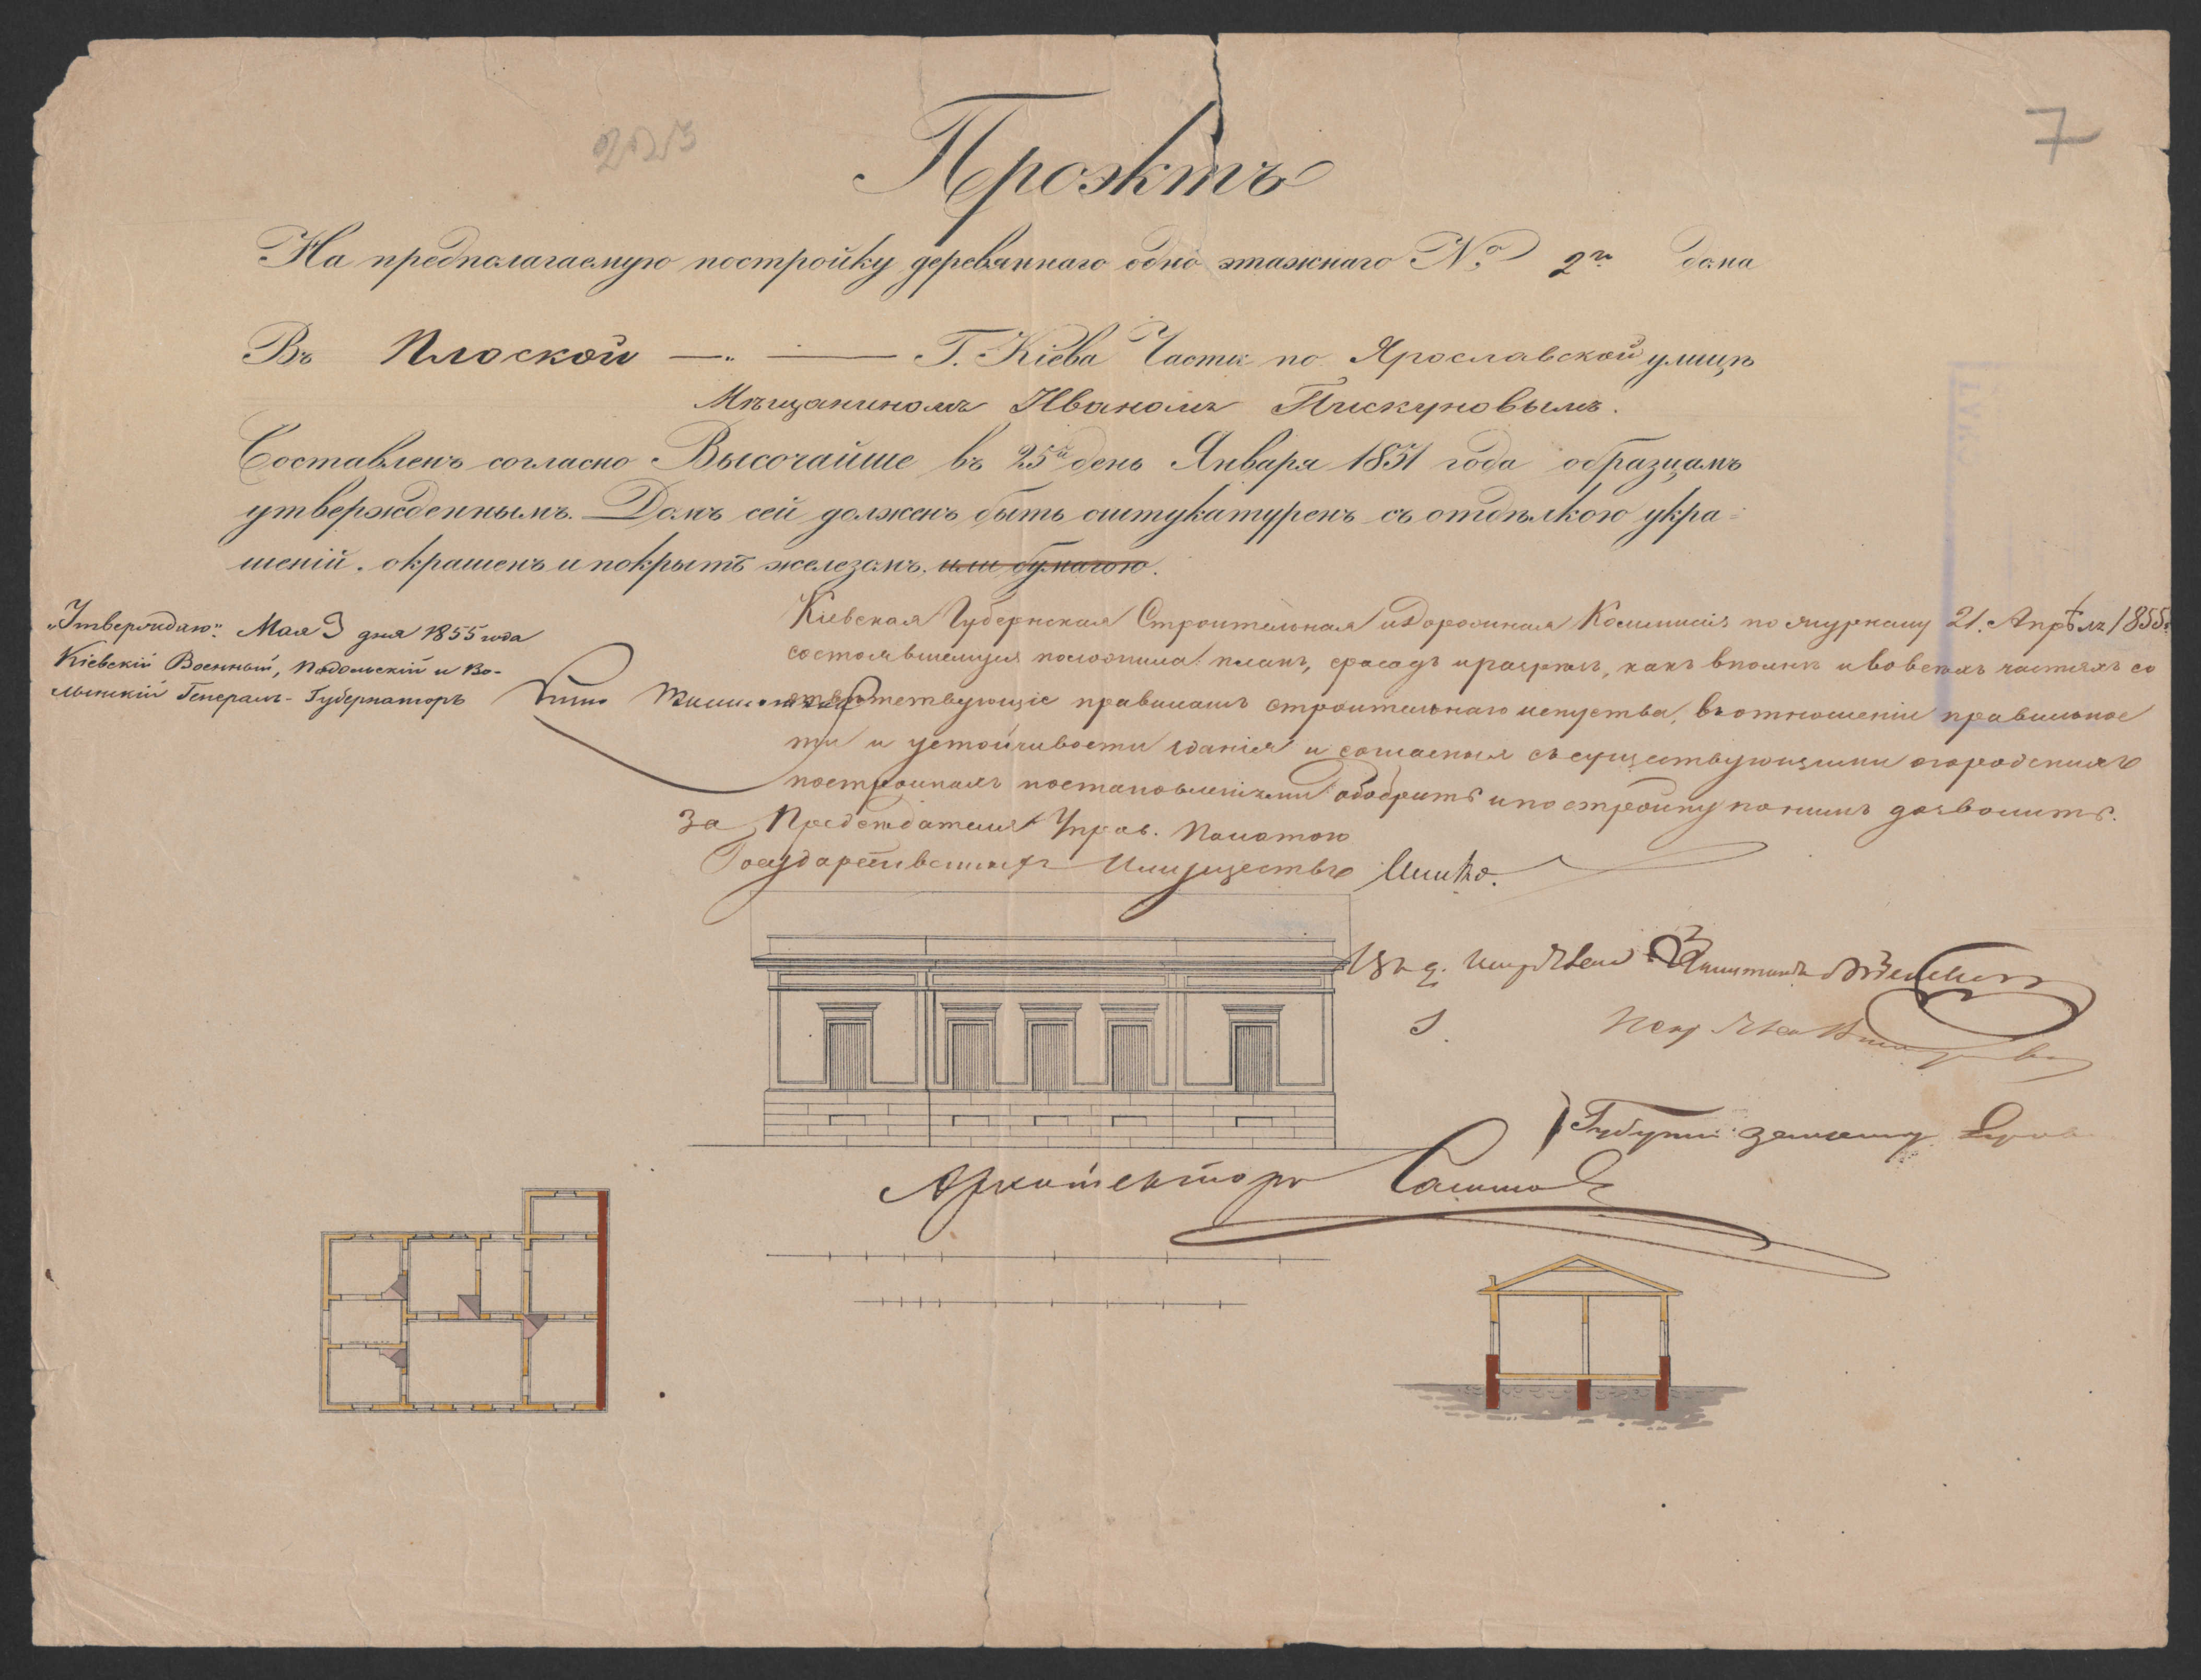 7
Проэктъ
На предполагаемую постройку деревяннаго одно этажнаго № 2й дома
Въ Плоской Г. Кіева Части по Ярославской улицѣ
Мѣщаниномъ Иваномъ Пискуновымъ.
Составленъ согласно Высочайше въ 25й день Января 1851 года образцамъ
утвержденнымъ. Домъ сей долженъ быть оштукатуренъ съ отдѣлкою укра-
шеній, окрашенъ и покрытъ железомъ, или бумагою.
„Утверждаю“ Мая 3 дня 1855 года
Кіевскій Военный, Подольскій и Во-
лынскій Генералъ-Губернаторъ
Кіевская Губернская Строительная и Дорожная Коммисія по журналу 21. Апрѣля 1855.
состоявшемуся положила: планъ, фасадъ и разрѣзъ, какъ вполнѣ и во всѣхъ частяхъ со
отвѣтствующіе правиламъ строительнаго искуства, въ отношеніи правильнос
ти и устойчивости зданія и согласныя съ существующими о городскихъ
постройкахъ постановленіями одобрить и постройку по нимъ дозволить.
За Предсѣдателя Управ. Палатою
Государственныхъ Имуществъ
Архитекторъ